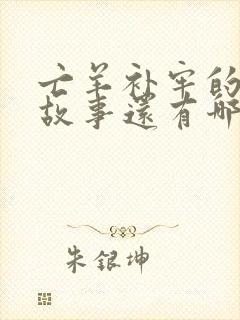 亡羊补牢的
故事还有哪
朱银坤